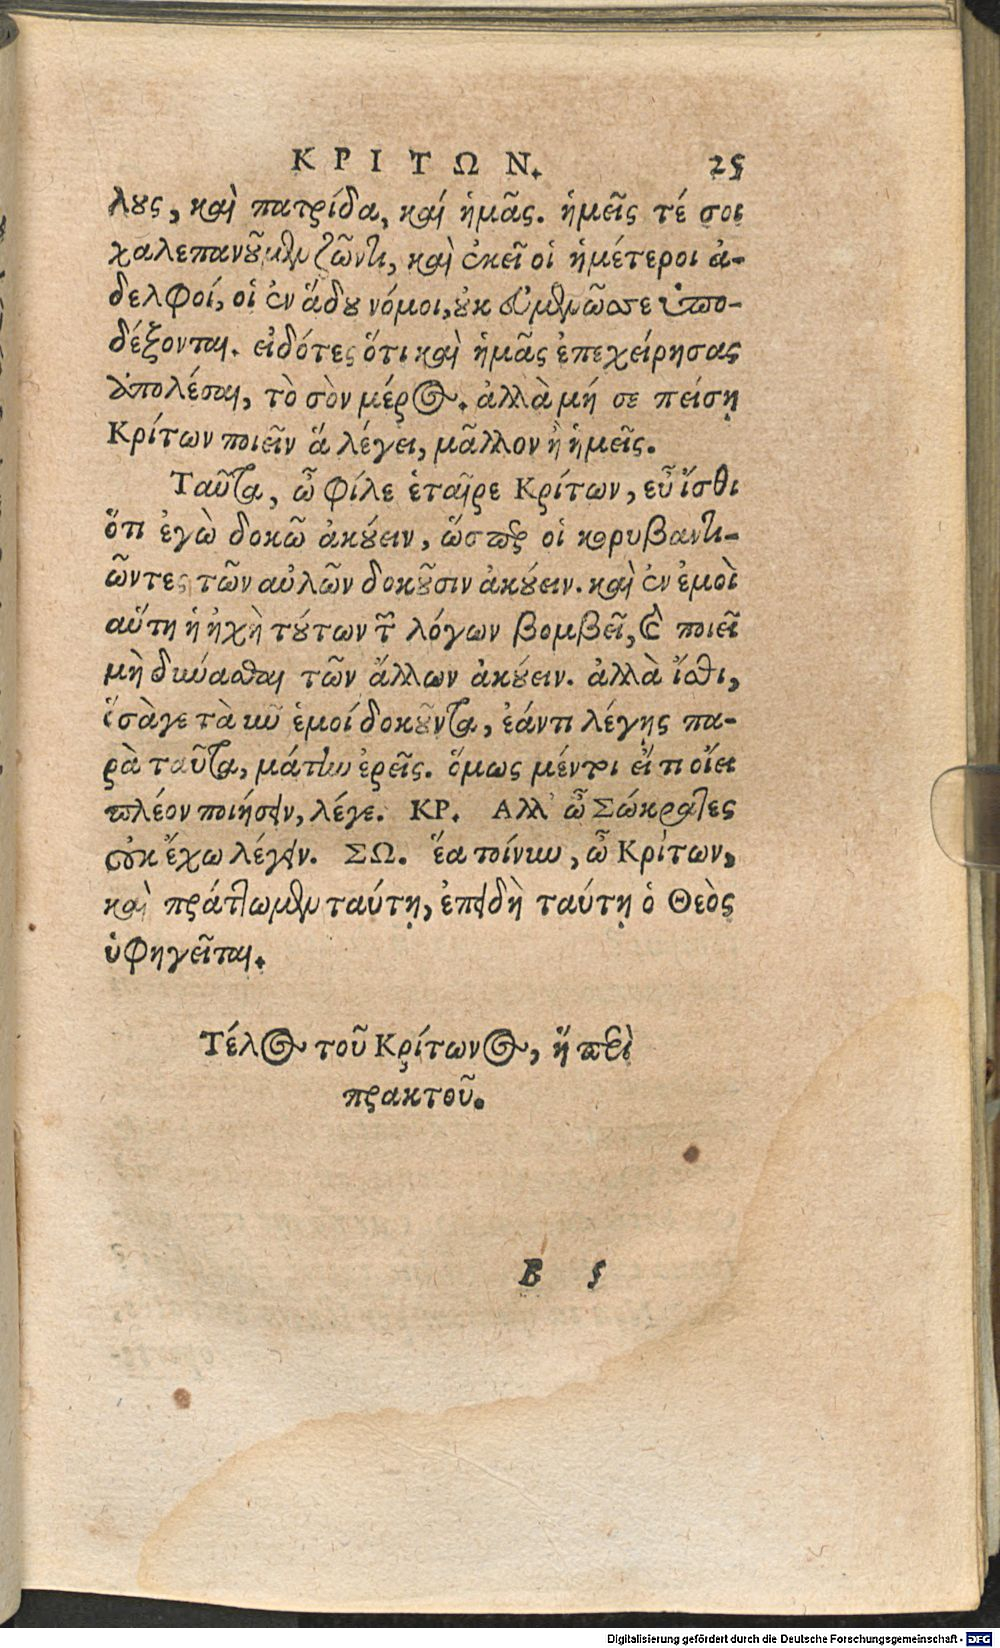 ΚΡΙΤΩΝ. 25
λους, καὶ πατρίδα, καί ἡμᾶς. ἡμεῖς τέ σοι
χαλεπανοῦμεν ζῶντι, καὶ ἐκεῖ οἱ ἡμέτεροι ἀ-
δελφοί, οἱ ἐν ἅδου νόμοι, οὐκ εὐμενῶς σε ὑπο-
δέξονται. εἰδότες ὅτι καὶ ἡμᾶς ἐπεχείρησας
ἀπολέσαι, τὸ σὸν μέρος. ἀλλὰ μή σε πείσῃ
Κρίτων ποιεῖν ἅ λέγει, μᾶλλον ἢ ἡμεῖς.
Ταῦτα, ὦ φίλε ἑταῖρε Κρίτων, εὖ ἴσθι
ὅτι ἐγὼ δοκῶ ἀκούειν, ὥσπερ οἱ κορυβαντι-
ῶντες τῶν αὐλῶν δοκοῦσιν ἀκούειν. καὶ ἐν ἐμοὶ
αὕτη ἡ ἠχὴ τούτων τῶν λόγων βομβεῖ, καὶ ποιεῖ
μὴ δύνασθαι τῶν ἄλλων ἀκούειν. ἀλλὰ ἴσθι,
ὅσα γε τὰ νῦν ἐμοί δοκοῦντα, ἐάν τι λέγῃς πα-
ρὰ ταῦτα, μάτην ἐρεῖς. ὅμως μέντοι εἴ τι οἴει
πλέον ποιήσειν, λέγε. ΚΡ. Αλλ' ὦ Σώκρατες
οὐκ ἔχω λέγειν. ΣΩ. ἔα τοίνυν, ὦ Κρίτων,
καὶ πράττωμεν ταύτῃ, ἐπειδὴ ταύτῃ ὁ Θεὸς
ὑφηγεῖται.
Τέλος τοῦ Κρίτωνος, ἢ περὶ
πρακτοῦ.
B 5
Digitalisierung gefördert durch die Deutsche Forschungsgemeinschaft - DFG